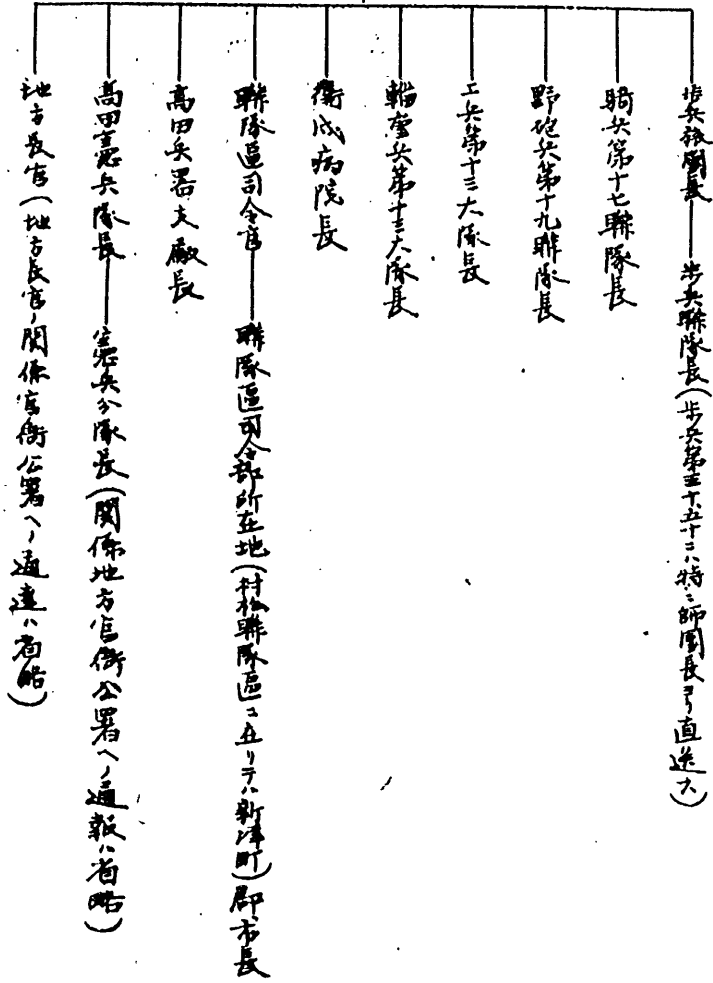 歩兵旅團長―歩兵聯隊長(歩兵第三十、五十ニハ特ニ師團長ヨリ直送ス)
騎兵第十七聯隊長
野砲兵第十九聯隊長
工兵第十三大隊長
輜重兵第十三大隊長
衛戍病院長
聯隊區司令官―聯隊區司令部所在地(村松聯隊區ニ在リテハ新津町)郡市長
高田兵器支廠長
高田憲兵隊長―憲兵分隊長(関係地方官衙公署ヘノ通報ハ省略)
地方長官(地方長官ノ関係官衙公署ヘノ通達ハ省略)